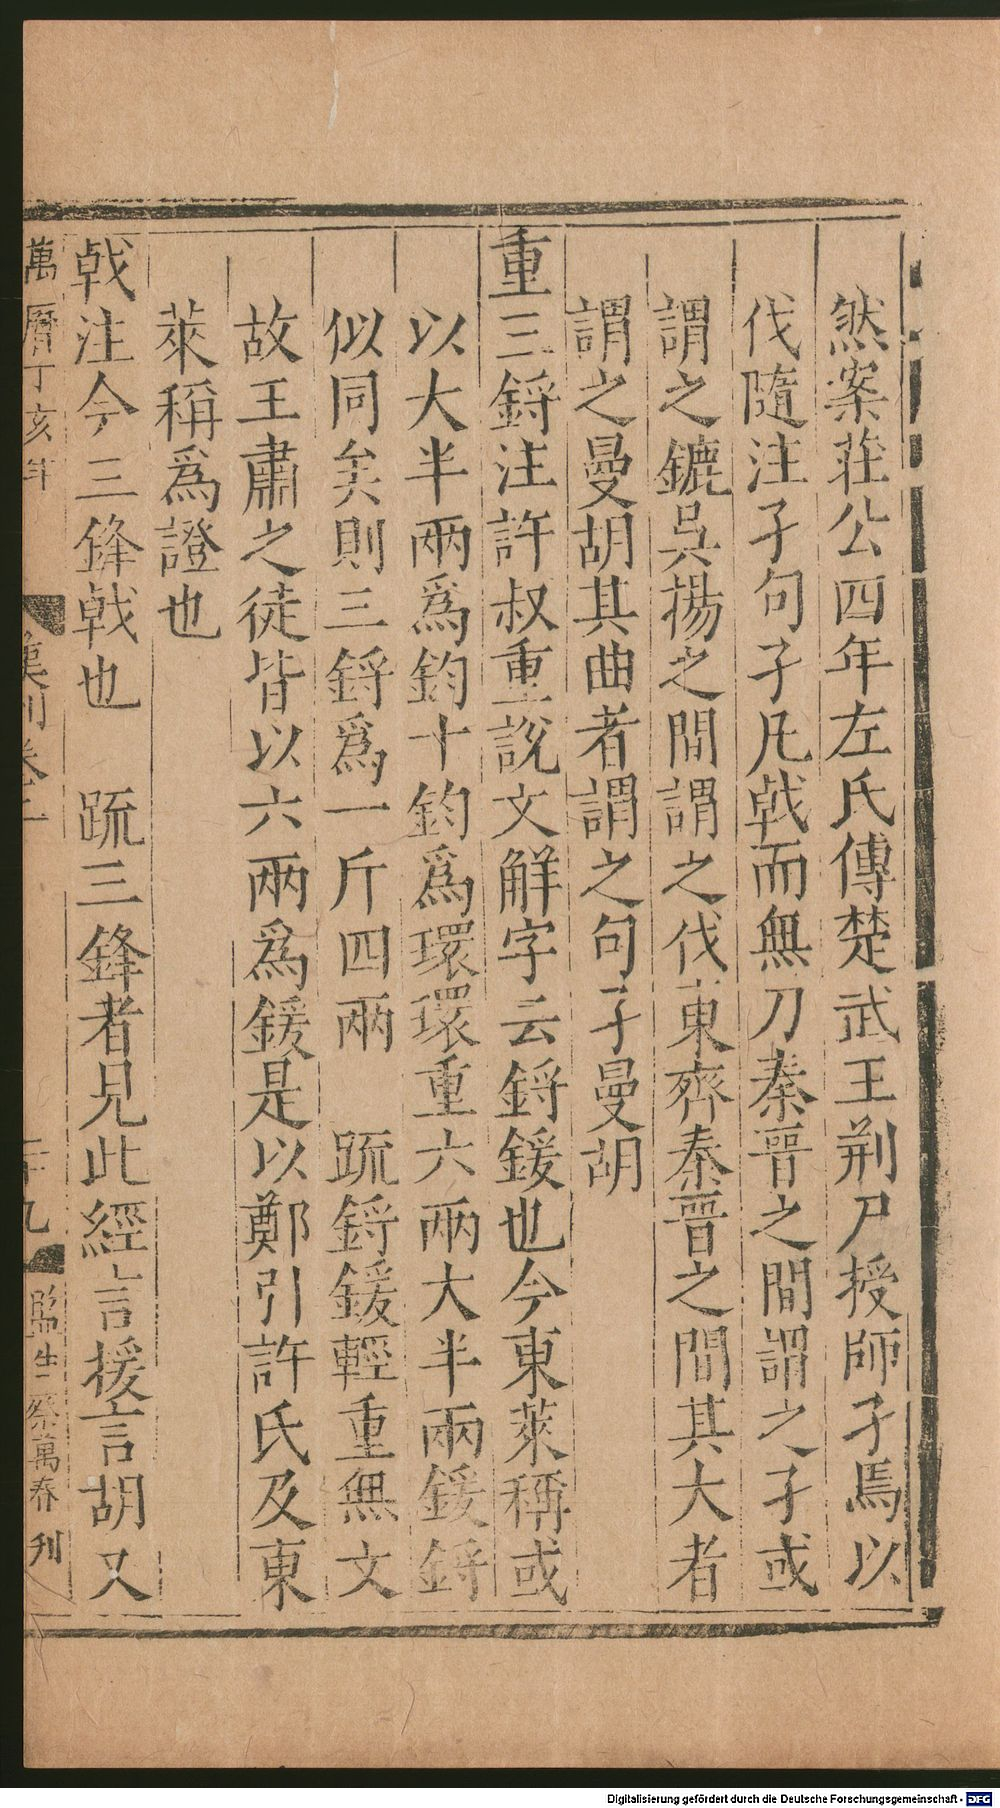 然案荘公四年左氏傳楚武王荆尸授師孑焉以
伐隨注孑句孑凡㦸而無刀秦晉之間謂之孑或
謂之鏕吳揚之間謂之伐東齊秦晉之間其大者
謂之曼胡其曲者謂之句孑曼胡
重三鋝注許叔重說文解字云鋝鍰也今東萊稱或
以大半兩爲鈞十鈞爲環環重六兩大半兩鍰鋝
似同矣則三鋝爲一斤四兩　䟽鋝鍰輕重無文
故王肅之徒皆以六兩爲鍰是以鄭引許氏及東
萊稱爲證也
㦸注今三鋒㦸也　䟽三鋒者見此經言援言胡又
萬曆丁亥年
卷
九
監生蔡萬春刊
Digitalisierung gefördert durch die Deutsche Forschungsgemeinschaft - DFG